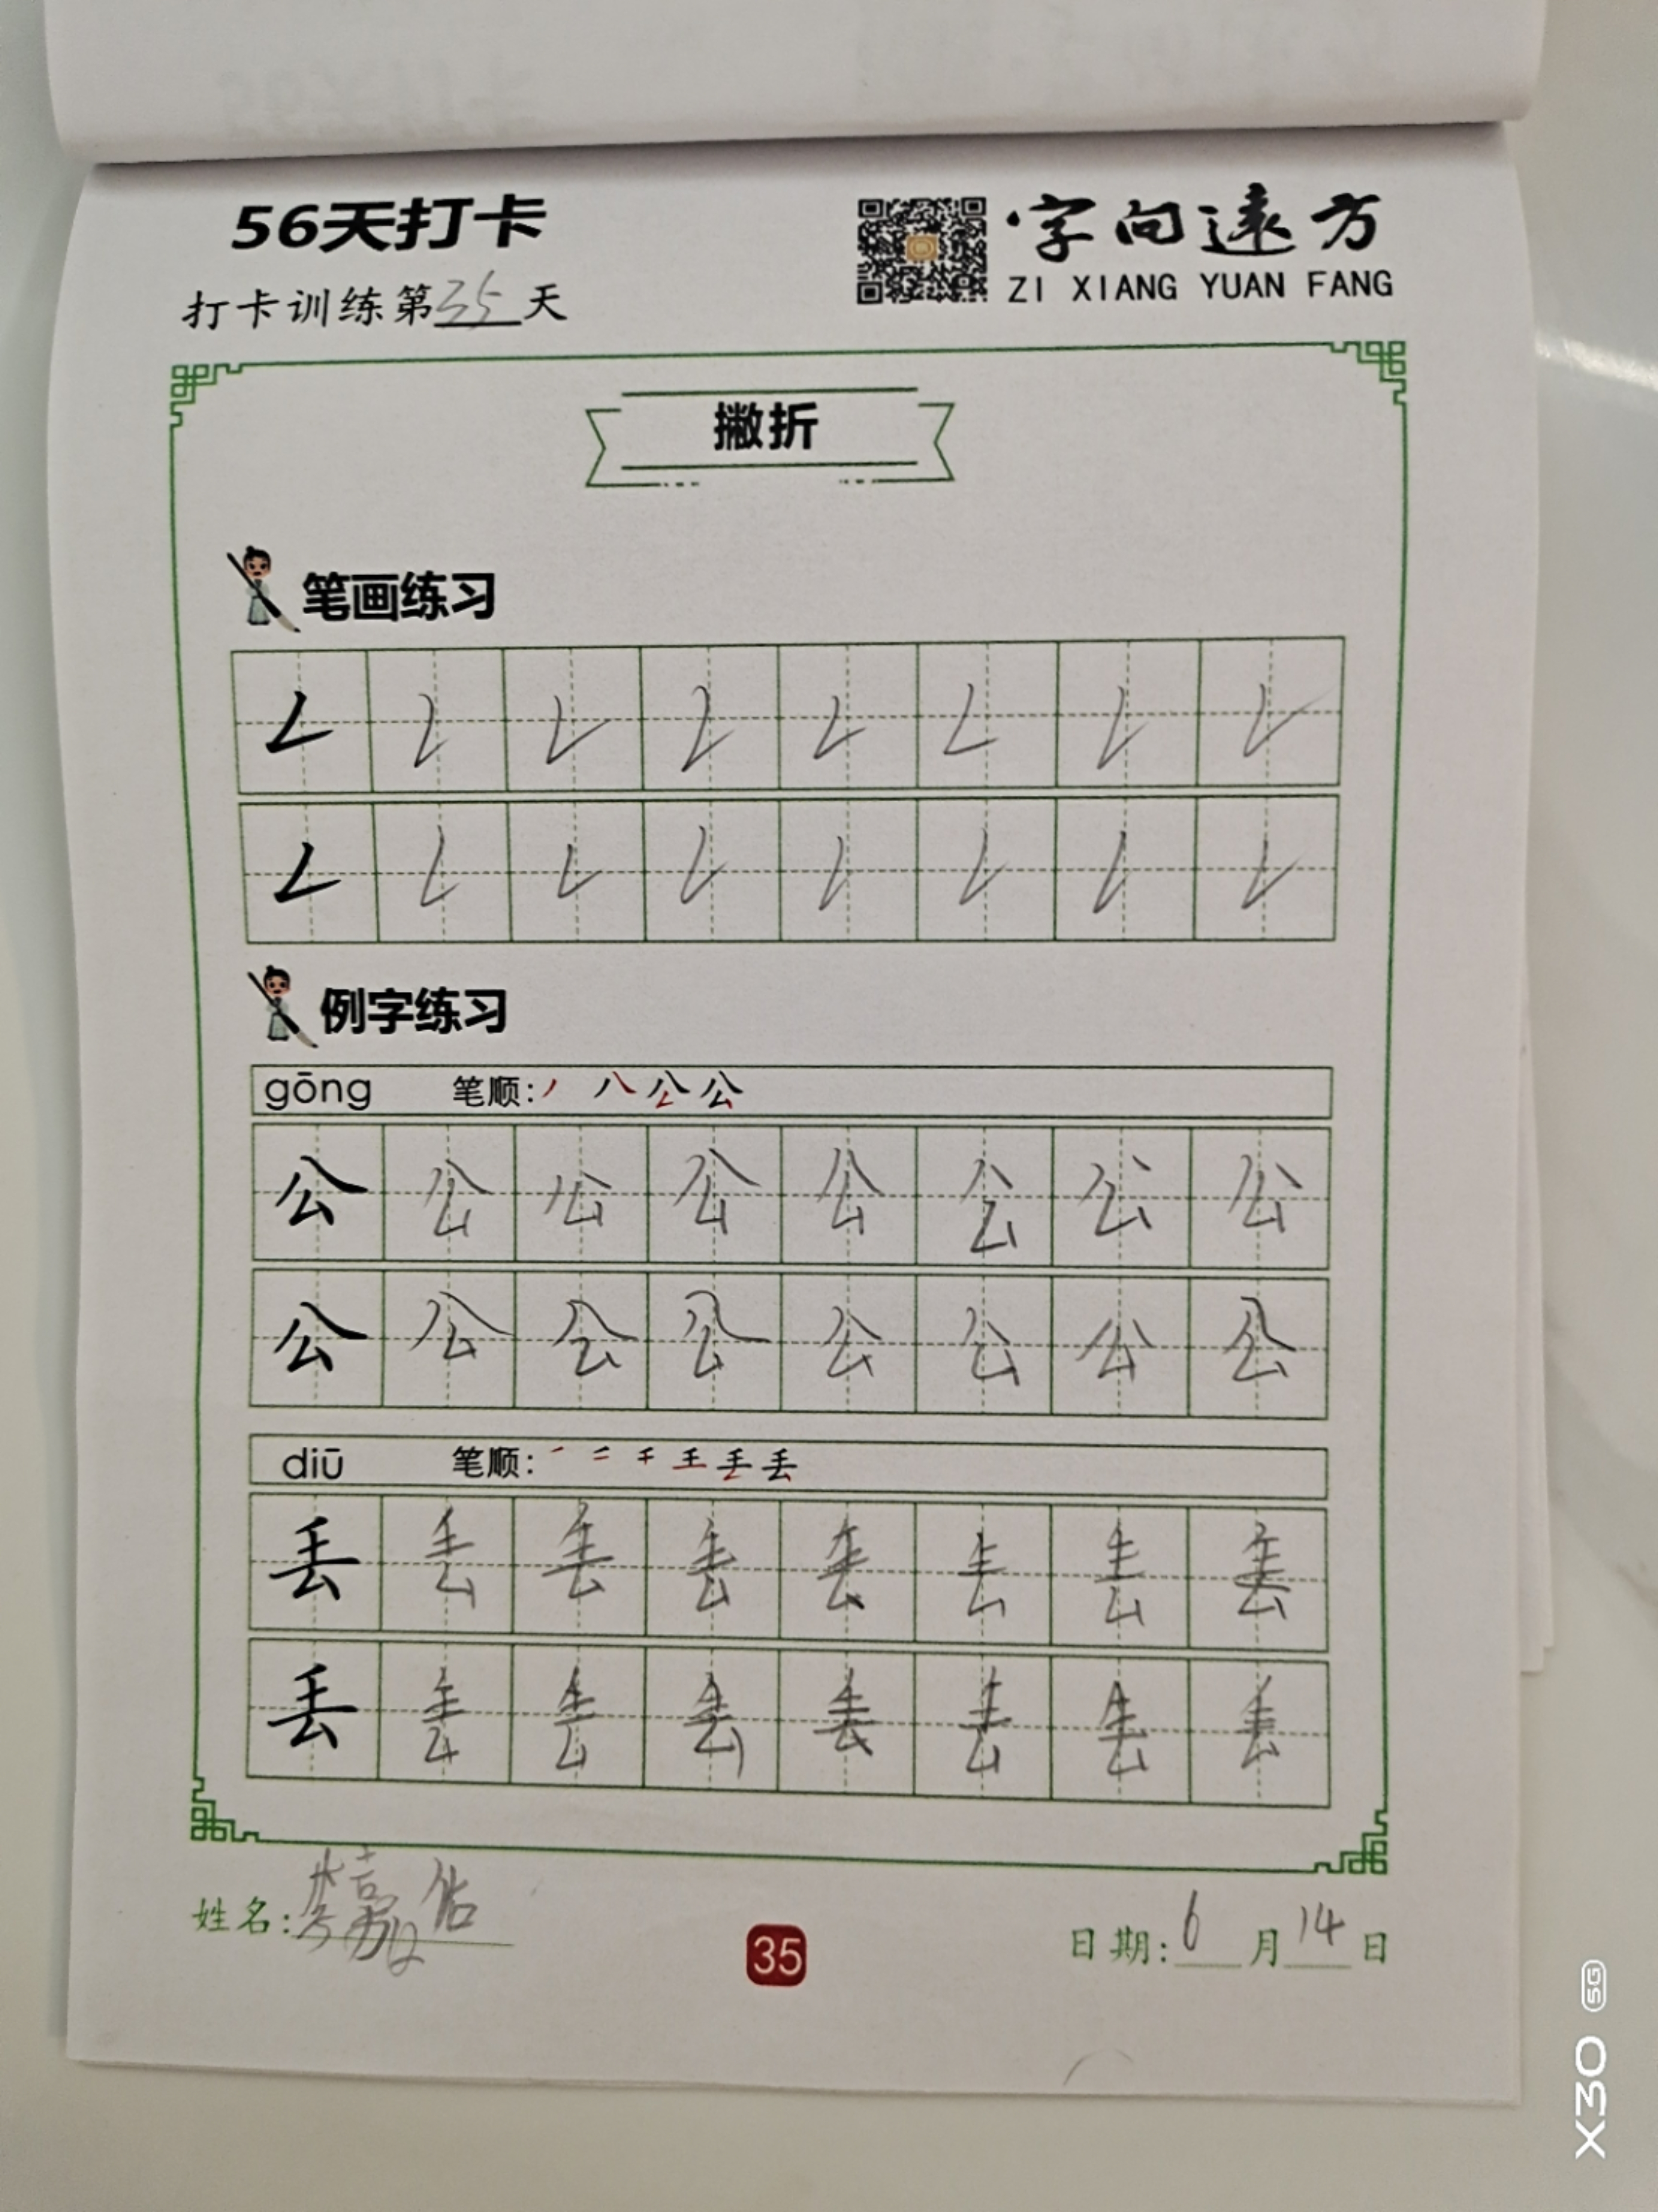 56天打卡
字向远方
ZI XIANG YUAN FANG
打卡训练第35天
撇折
笔画练习
𠃋 𠃋 𠃋 𠃋 𠃋 𠃋 𠃋 𠃋
𠃋 𠃋 𠃋 𠃋 𠃋 𠃋 𠃋 𠃋
例字练习
gōng 笔顺:
公 公 公 公 公 公 公 公
公 公 公 公 公 公 公 公
diū 笔顺:
丢 丢 丢 丢 丢 丢 丢 丢
丢 丢 丢 丢 丢 丢 丢 丢
姓名:
35
日期:6月14日
X30 5G